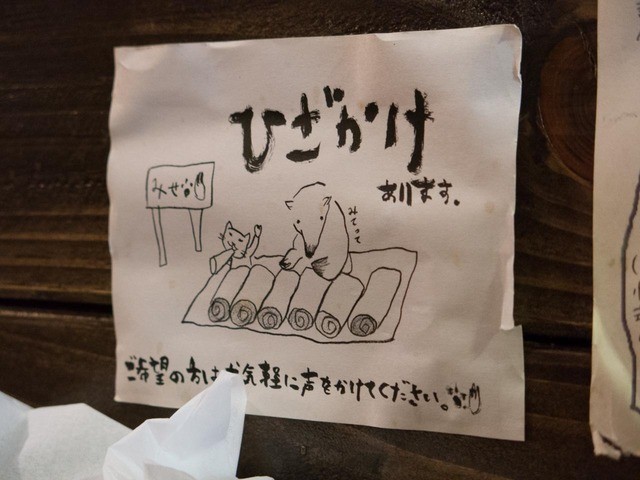 ひざかけ
あります。
みせ
みてって
ご希望の方はお気軽に声をかけてください。